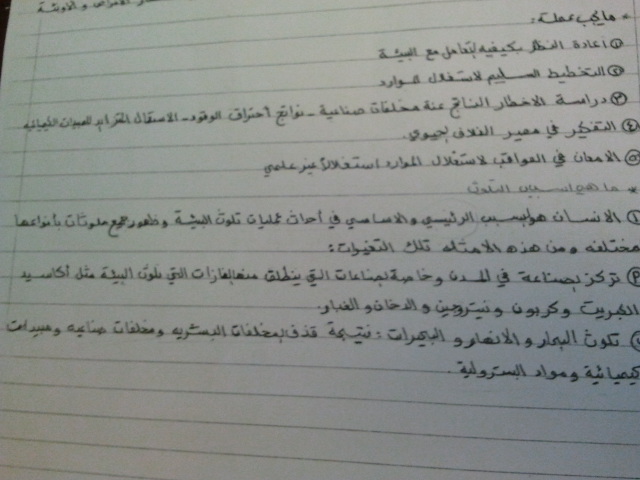 الأمراض والأوبئة
* ما يجب عمله:
① أعادة النظر بكيفيه التعامل مع البيئة
② التخطيط السليم لاستغلال الموارد
③ دراسة الاخطار الناتج عنة مخلفات صناعية - نواتج أحتراق الوقود - الاستقلال
④ التفكير في مصير الغلاف الحيوي.
⑤ الامعان في العواقب لاستغلال الموارد استغلالاً غير علمي
* ما هو اسباب التلوث
① الانسان هو السبب الرئيسي والاساسي في أحداث عمليات تلوث البيئة وظهور جميع ملوثات بأنواعها
مختلفه ومن هذه الامثله تلك التغيرات:
تركز الصناعة في المدن وخاصة الصناعات التي ينطلق منها الغازات التي تلوث البيئة مثل أكاسيد
الكبريت وكربون ونيتروجين والدخان والغبار.
تلوث البحار والانهار و البحيرات: نتيجة قذف المخلفات البشريه ومخلفات صناعيه ومبيدات
كيميائية ومواد البترولية.